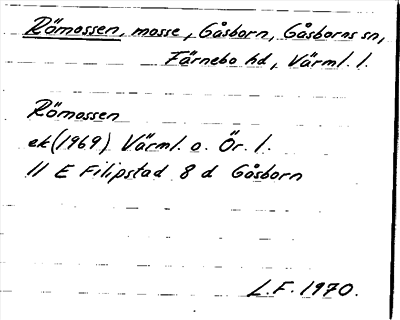 Römossen, mosse, Gåsborn, Gåsborns sn,
Färnebo hd, Värml. l.
Römossen
ek(1969) Värml. o. Ör. l.
11 E Filipstad 8 d Gåsborn
L.F. 1970.